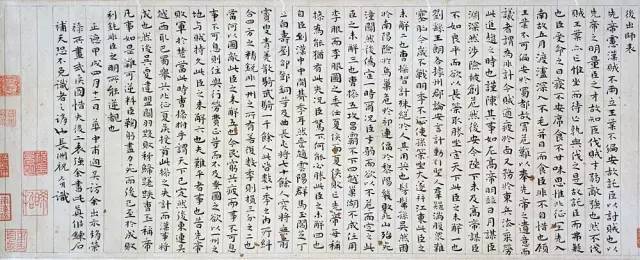 後出師表
先帝慮漢賊不兩立王業不偏安故託臣以討賊也以
先帝之明量臣之才故知臣伐賊才弱敵強也然不伐賊
王業亦亡惟坐而待亡孰與伐之是故託臣而弗疑
也臣受命之日寢不安席食不甘味思惟北征宜先入
南故五月渡瀘深入不毛并日而食臣非不自惜也顧
王業不可偏安於蜀都故冒危難以奉先帝之遺意而
議者謂為非計今賊適疲於西又務於東兵法乘勞
此進趨之時也謹陳其事如左高帝明並日月謀臣
淵深然涉險被創危然後安今陛下未及高帝謀臣
不如良平而欲以長策取勝坐定天下此臣之未解一也
劉繇王朗各據州郡論安言計動引聖人羣疑滿腹衆難
塞胸今歲不戰明年不征使孫策坐大遂并江東此臣之
未解二也曹操智計殊絕於人其用兵也髣髴孫吳然困
於南陽險於烏巢危於祁連偪於黎陽幾敗北山殆死
潼關然後偽定一時爾況臣才弱而欲以不危而定之此
臣之未解三也曹操五攻昌霸不下四越巢湖不成任用
李服而李服圖之委任夏侯而夏侯敗亡先帝每稱
操為能猶有此失況臣駑下何能必勝此臣之未解四也
自臣到漢中中間朞年耳然喪趙雲陽羣馬玉閻芝丁
立白壽劉郃鄧銅等及曲長屯將七十餘人突將無前
賨叟青羌散騎武騎一千餘人此皆數十年之內所糾
合四方之精銳非一州之所有若復數年則損三分之二也
當何以圖敵此臣之未解五也今民窮兵疲而事不可息
事不可息則住與行勞費正等而不及蚤圖之欲以一州之
地與賊持久此臣之未解六也夫難平者事也昔先帝
敗軍於楚當此時曹操拊手謂天下已定然後先帝東連吳
越西取巴蜀舉兵北征夏侯授首此操之失計而漢事將
成也然後吳更違盟關羽毀敗秭歸蹉跌曹丕稱帝
凡事如是難可逆料臣鞠躬盡力死而後已至於成敗
利鈍非臣之明所能逆覩也
正德甲戌
長洲祝